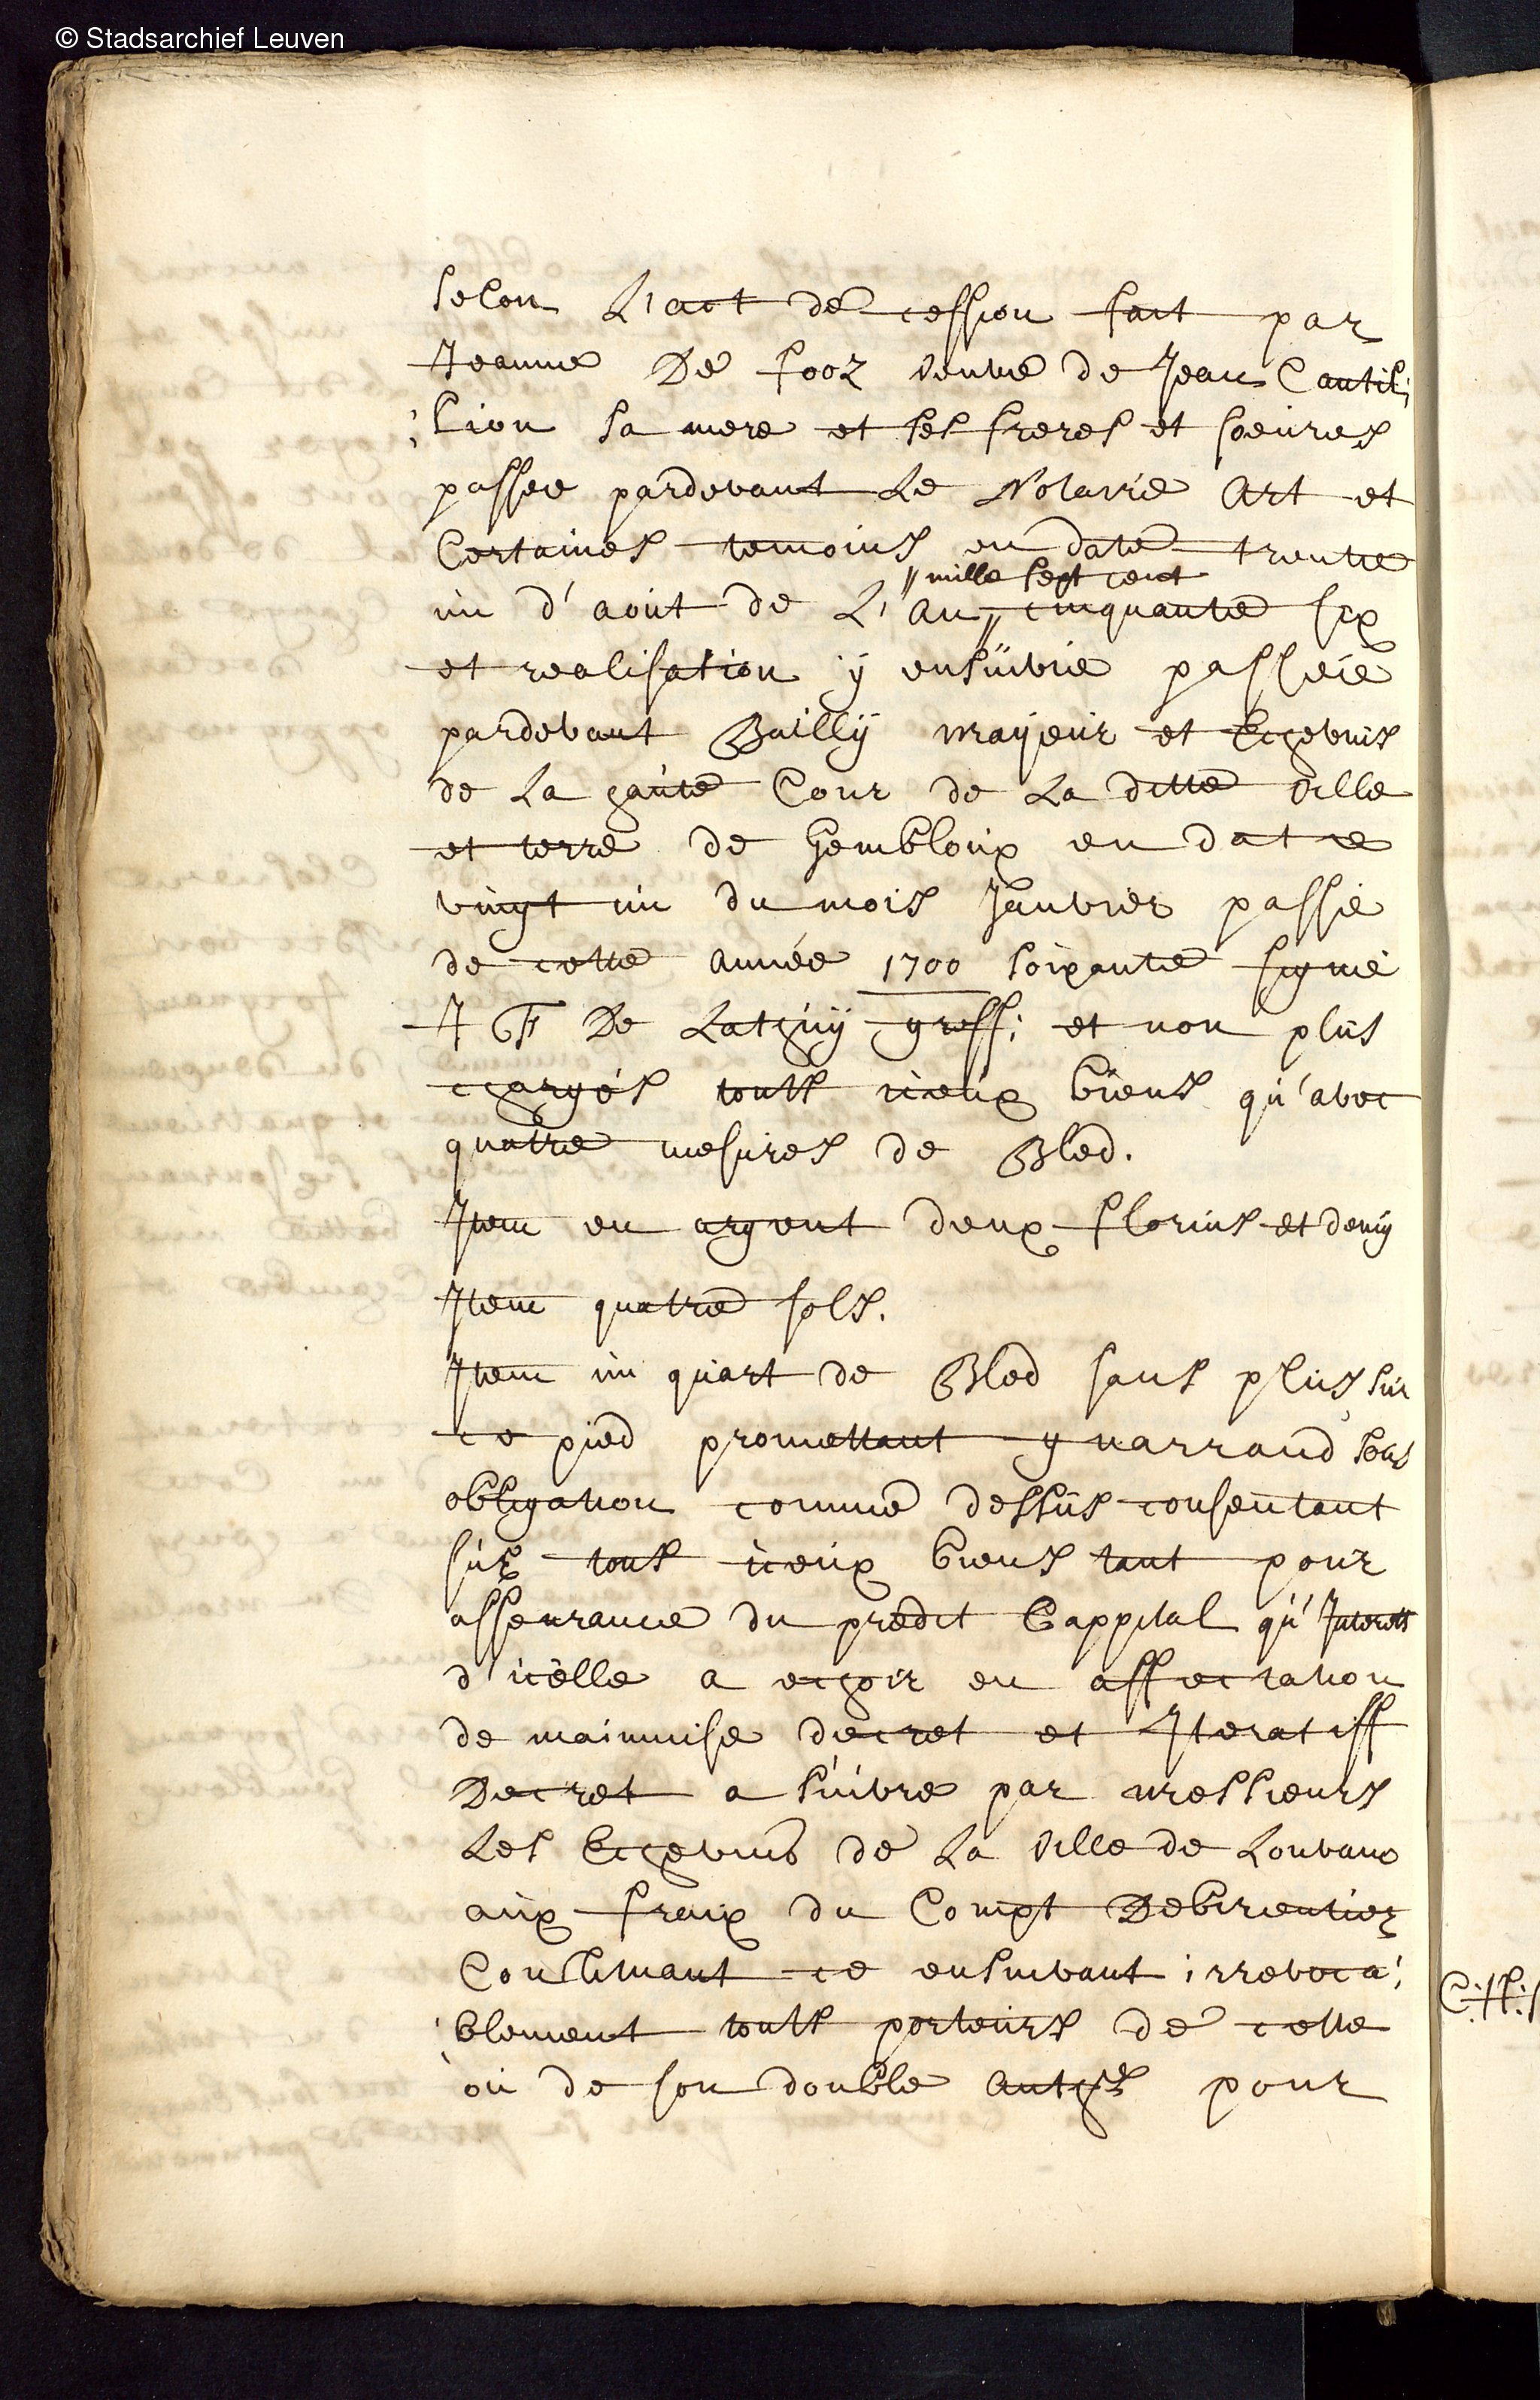 © Stadsarchief Leuven
selon L'act de cession fait par
Jeanne De fooz veuve de Jean Cantil:
:lion sa mere et ses freres et soeures
passee pardevant Le Notaire Art et
Certaines temoins en date trente
"mille sept cent
un d'aout de L'An" cinquante six
et realisation y ensuivie passeie
pardevant Bailly mayeur et Echevins
de La haute Cour de La ditte ville
et terre de Gembloux en date
vingt un du mois Janvier passé
de cette année 1700 soixante signé
J F De Lathuy greff: et non plus
chargés touts iceux biens qu'avec
quatre mesures de Bled.
Item en argent deux florins et demy
Item quatre sols.
Item un quart de Bled sans plus sur
ce pied promettant guarrand sous
obligation comme dessus consentant
sur tous iceux biens tant pour
asseurance du predit Cappital qu'Interets
d'icelle a echoir en affectation
de mainmise decret et Iteratiff
Decret a suivre par messieurs
Les Echevins de La ville de Louvain
aux fraix du Compt Debirentier
Constituant ce ensuivant irrevoca:
:blement touts porteurs de cette
ou de son double Auth: pour